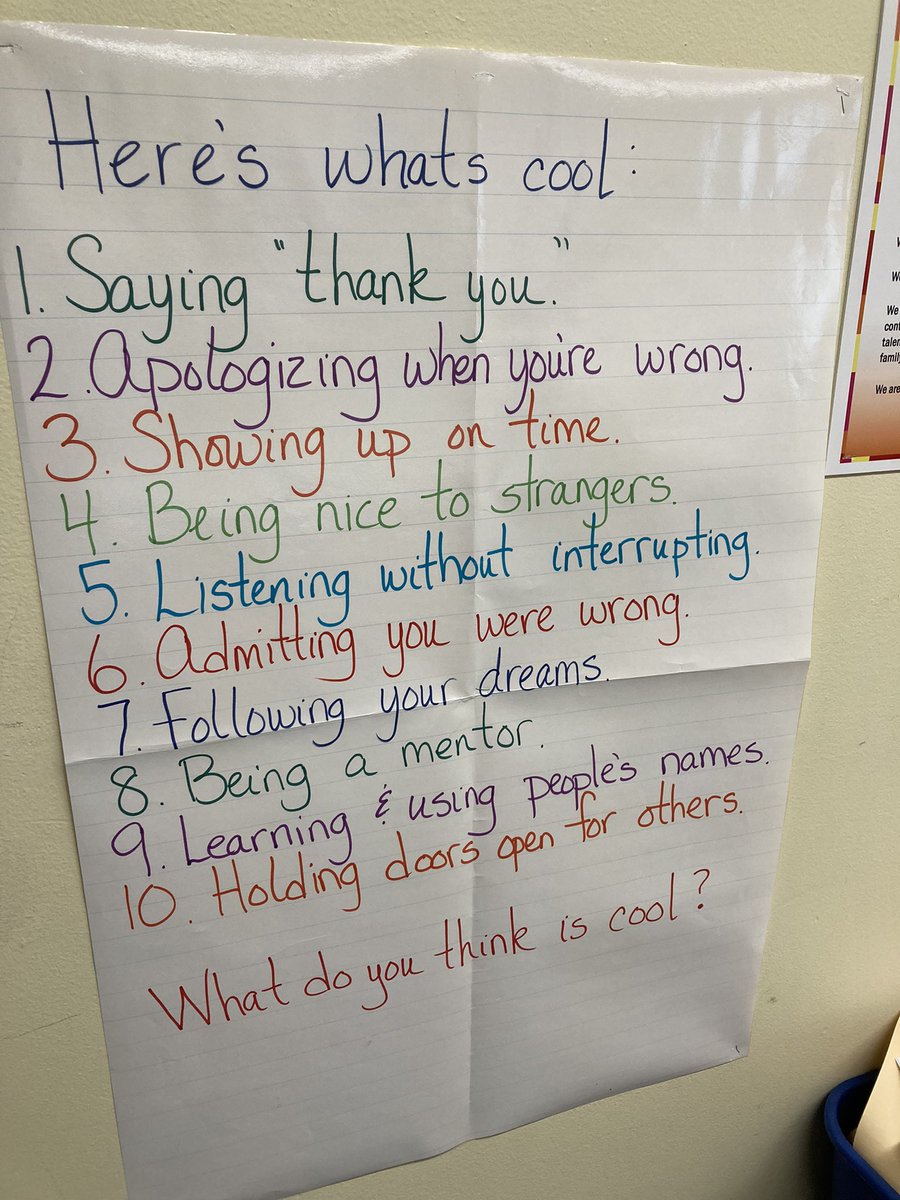 Here's whats cool:
1. Saying "thank you."
2. Apologizing when you're wrong.
3. Showing up on time.
4. Being nice to strangers.
5. Listening without interrupting.
6. Admitting you were wrong.
7. Following your dreams.
8. Being a mentor.
9. Learning & using people's names.
10. Holding doors open for others.
What do you think is cool?
We
We
family
We are